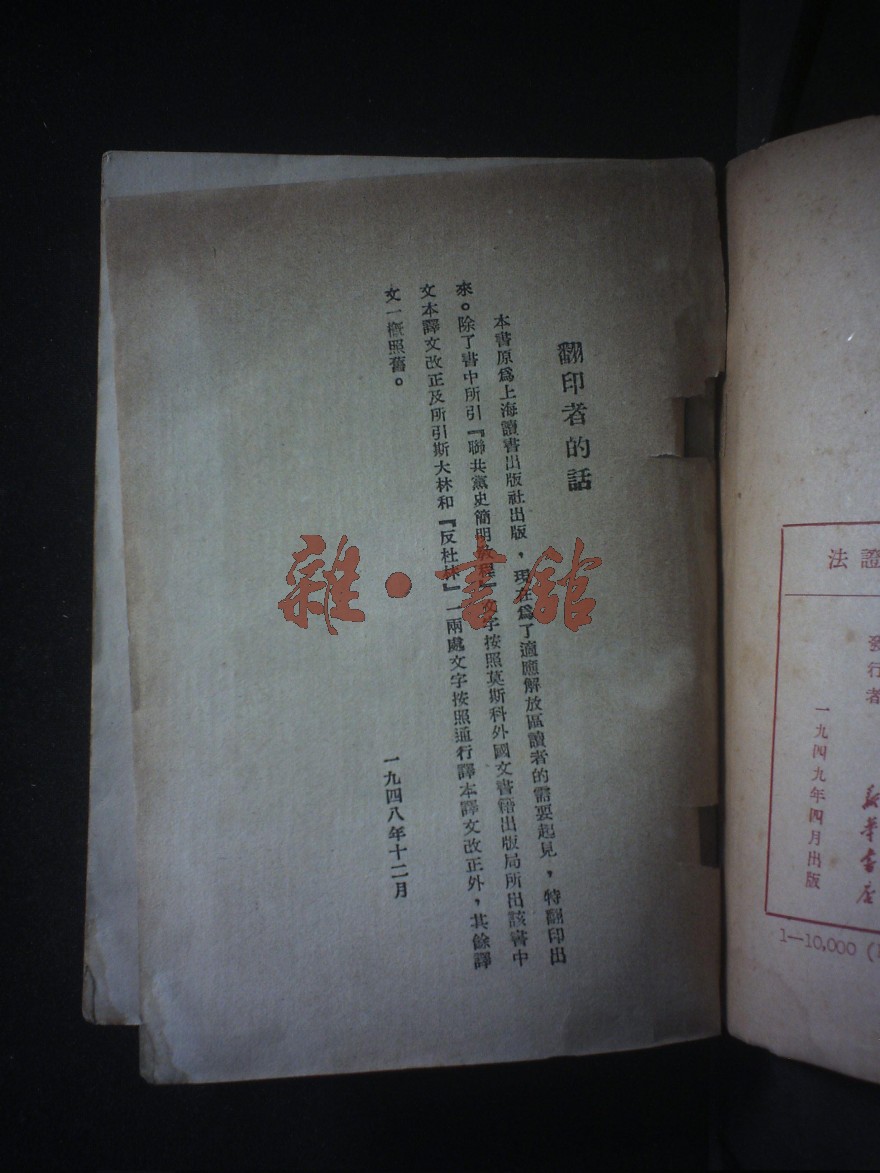 翻印者的話
本書原爲上海讀書出版社出版，現在爲了適應解放區讀者的需要起見，特翻印出
來。除了書中所引『聯共黨史簡明教程』文字按照莫斯科外國文書籍出版局所出該書中
文本譯文改正及所引斯大林和『反杜林』一兩處文字按照通行譯本譯文改正外，其餘譯
文一概照舊。
一九四八年十二月
雜·書館
證法
發行者
新華書店
一九四九年四月出版
1—10,000